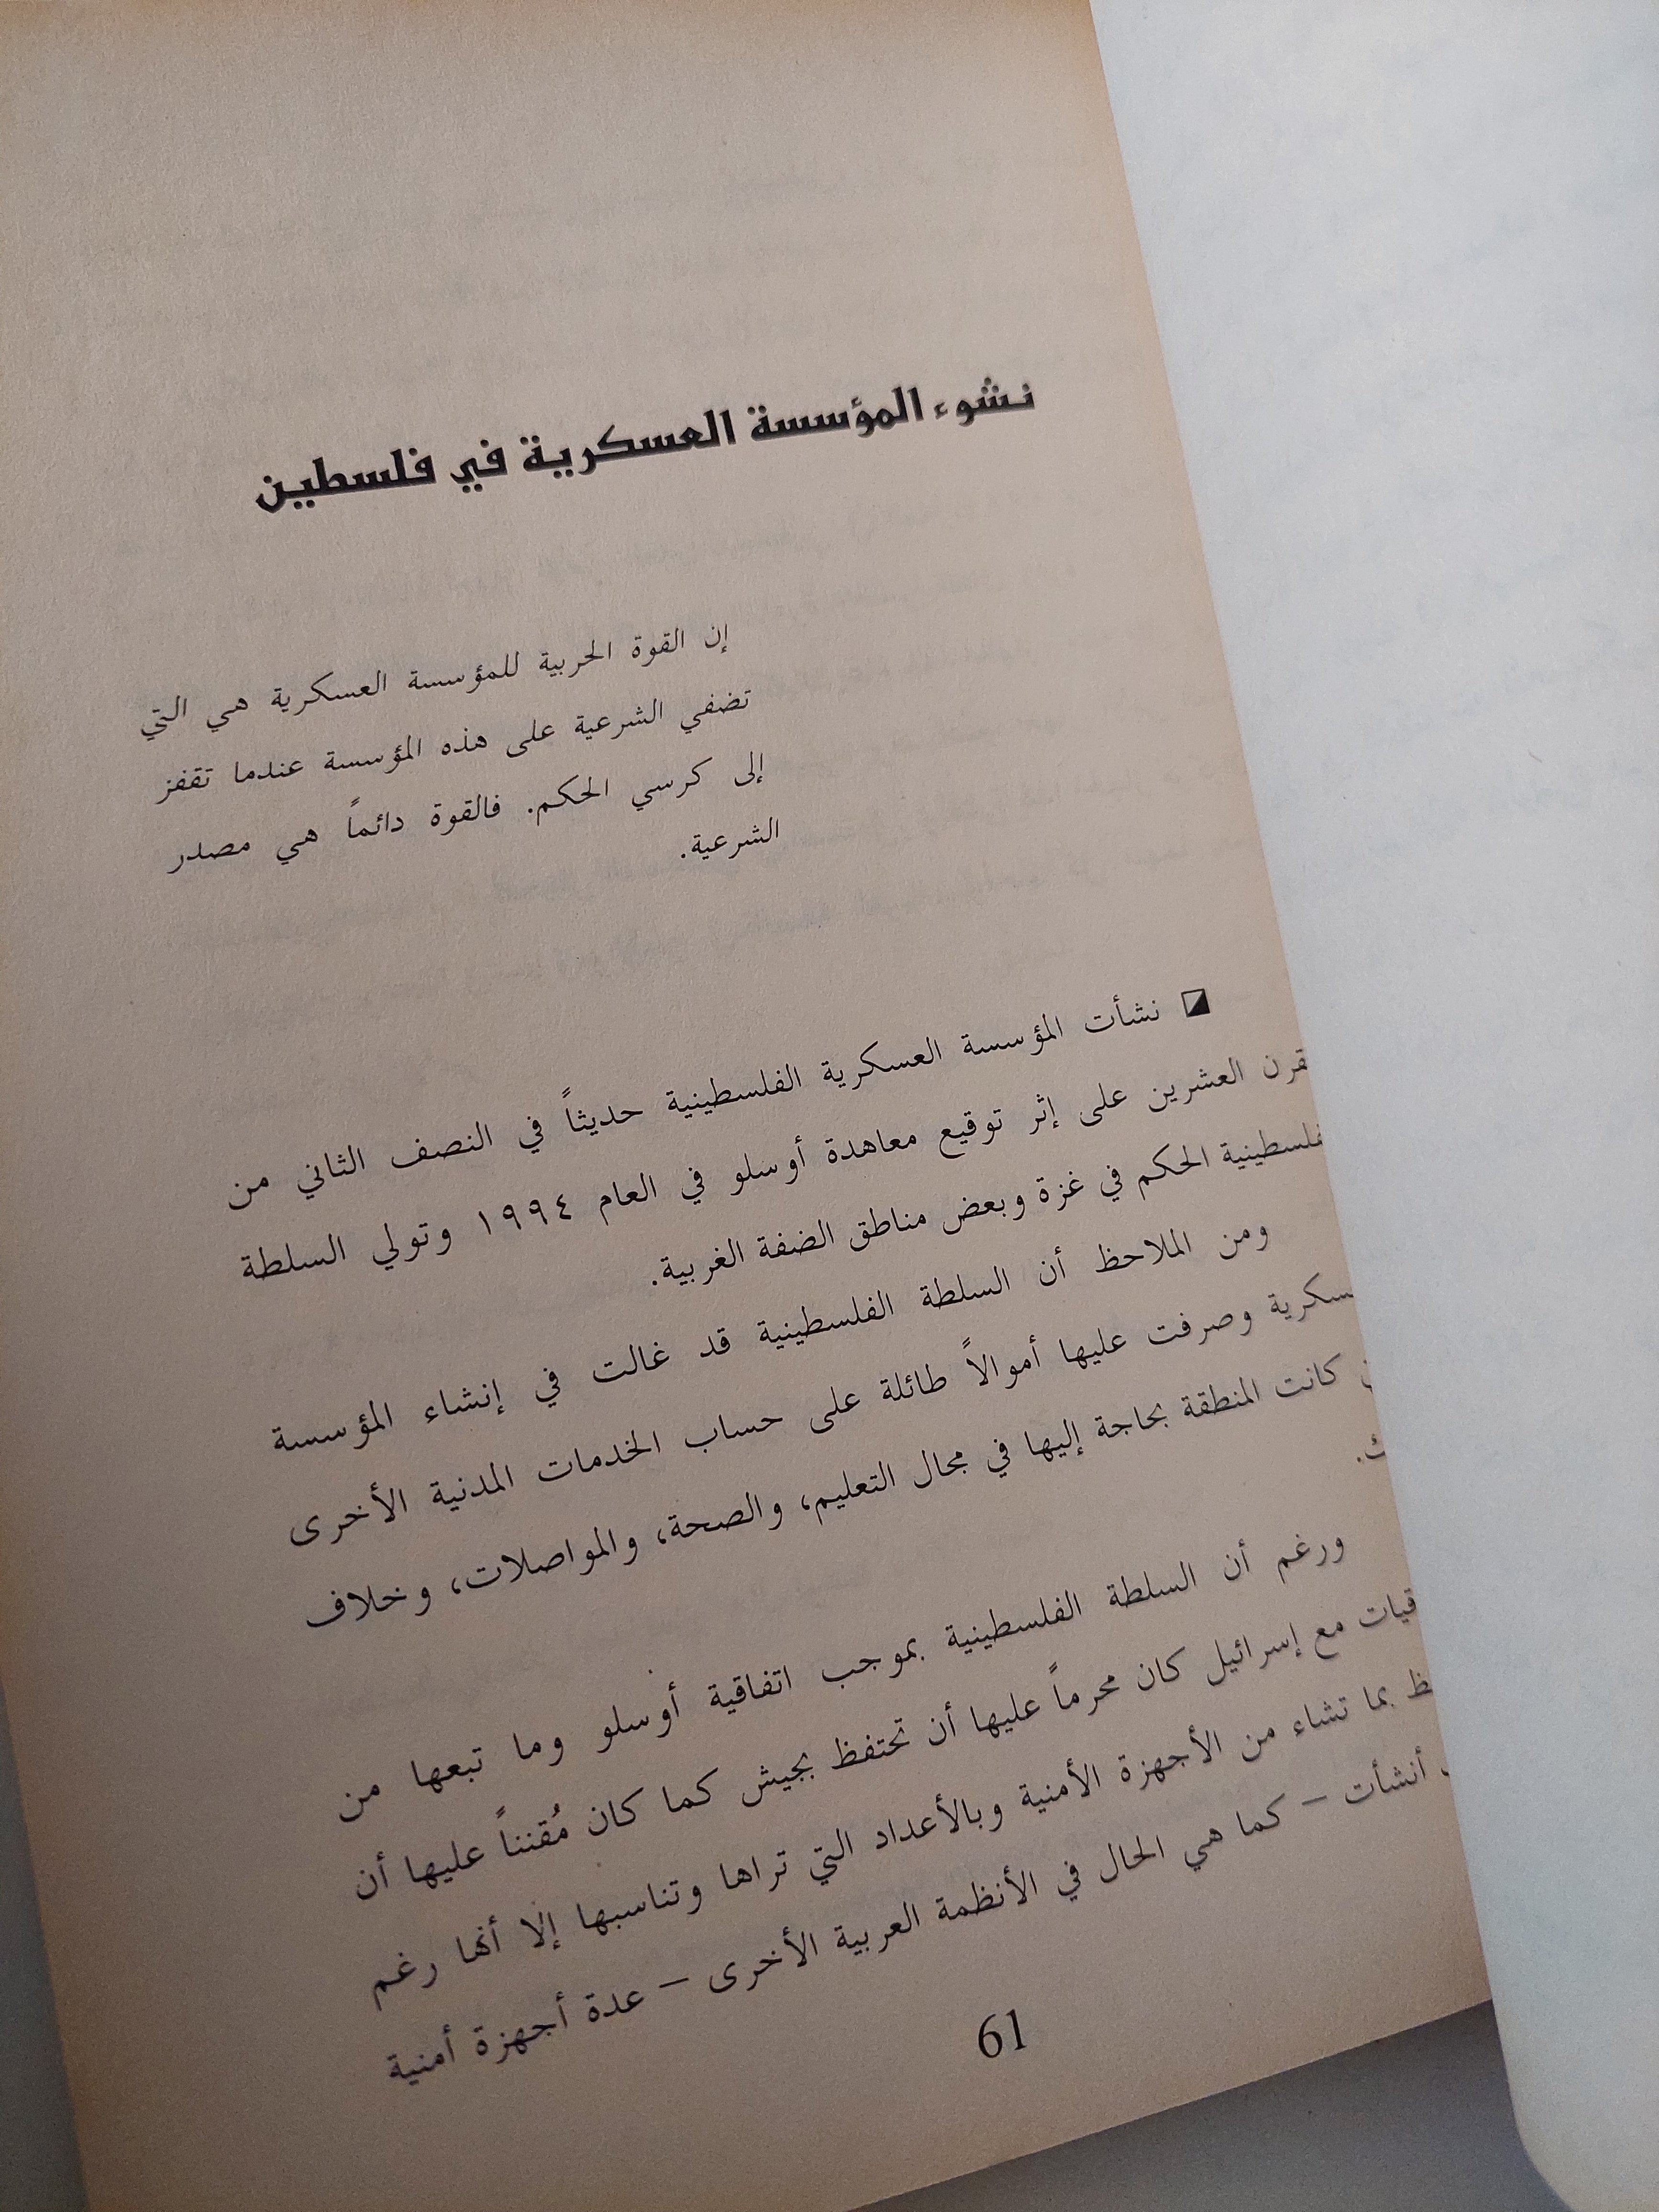 نشوء المؤسسة العسكرية في فلسطين
إن القوة الحربية للمؤسسة العسكرية هي التي
تضفي الشرعية على هذه المؤسسة عندما تقفز
إلى كرسي الحكم. فالقوة دائماً هي مصدر
الشرعية.
نشأت المؤسسة العسكرية الفلسطينية حديثاً في النصف الثاني من
العشرين على إثر توقيع معاهدة أوسلو في العام ١٩٩٤ وتولي السلطة
الحكم في غزة وبعض مناطق الضفة الغربية.
ومن الملاحظ أن السلطة الفلسطينية قد غالت في إنشاء المؤسسة
وصرفت عليها أموالاً طائلة على حساب الخدمات المدنية الأخرى
كانت المنطقة بحاجة إليها في مجال التعليم، والصحة، والمواصلات، وخلاف
ورغم أن السلطة الفلسطينية بموجب اتفاقية أوسلو وما تبعها من
مع إسرائيل كان محرماً عليها أن تحتفظ بجيش كما كان مُقنناً عليها أن
بما تشاء من الأجهزة الأمنية وبالأعداد التي تراها وتناسبها إلا أنها رغم
أنشأت – كما هي الحال في الأنظمة العربية الأخرى – عدة أجهزة أمنية
61